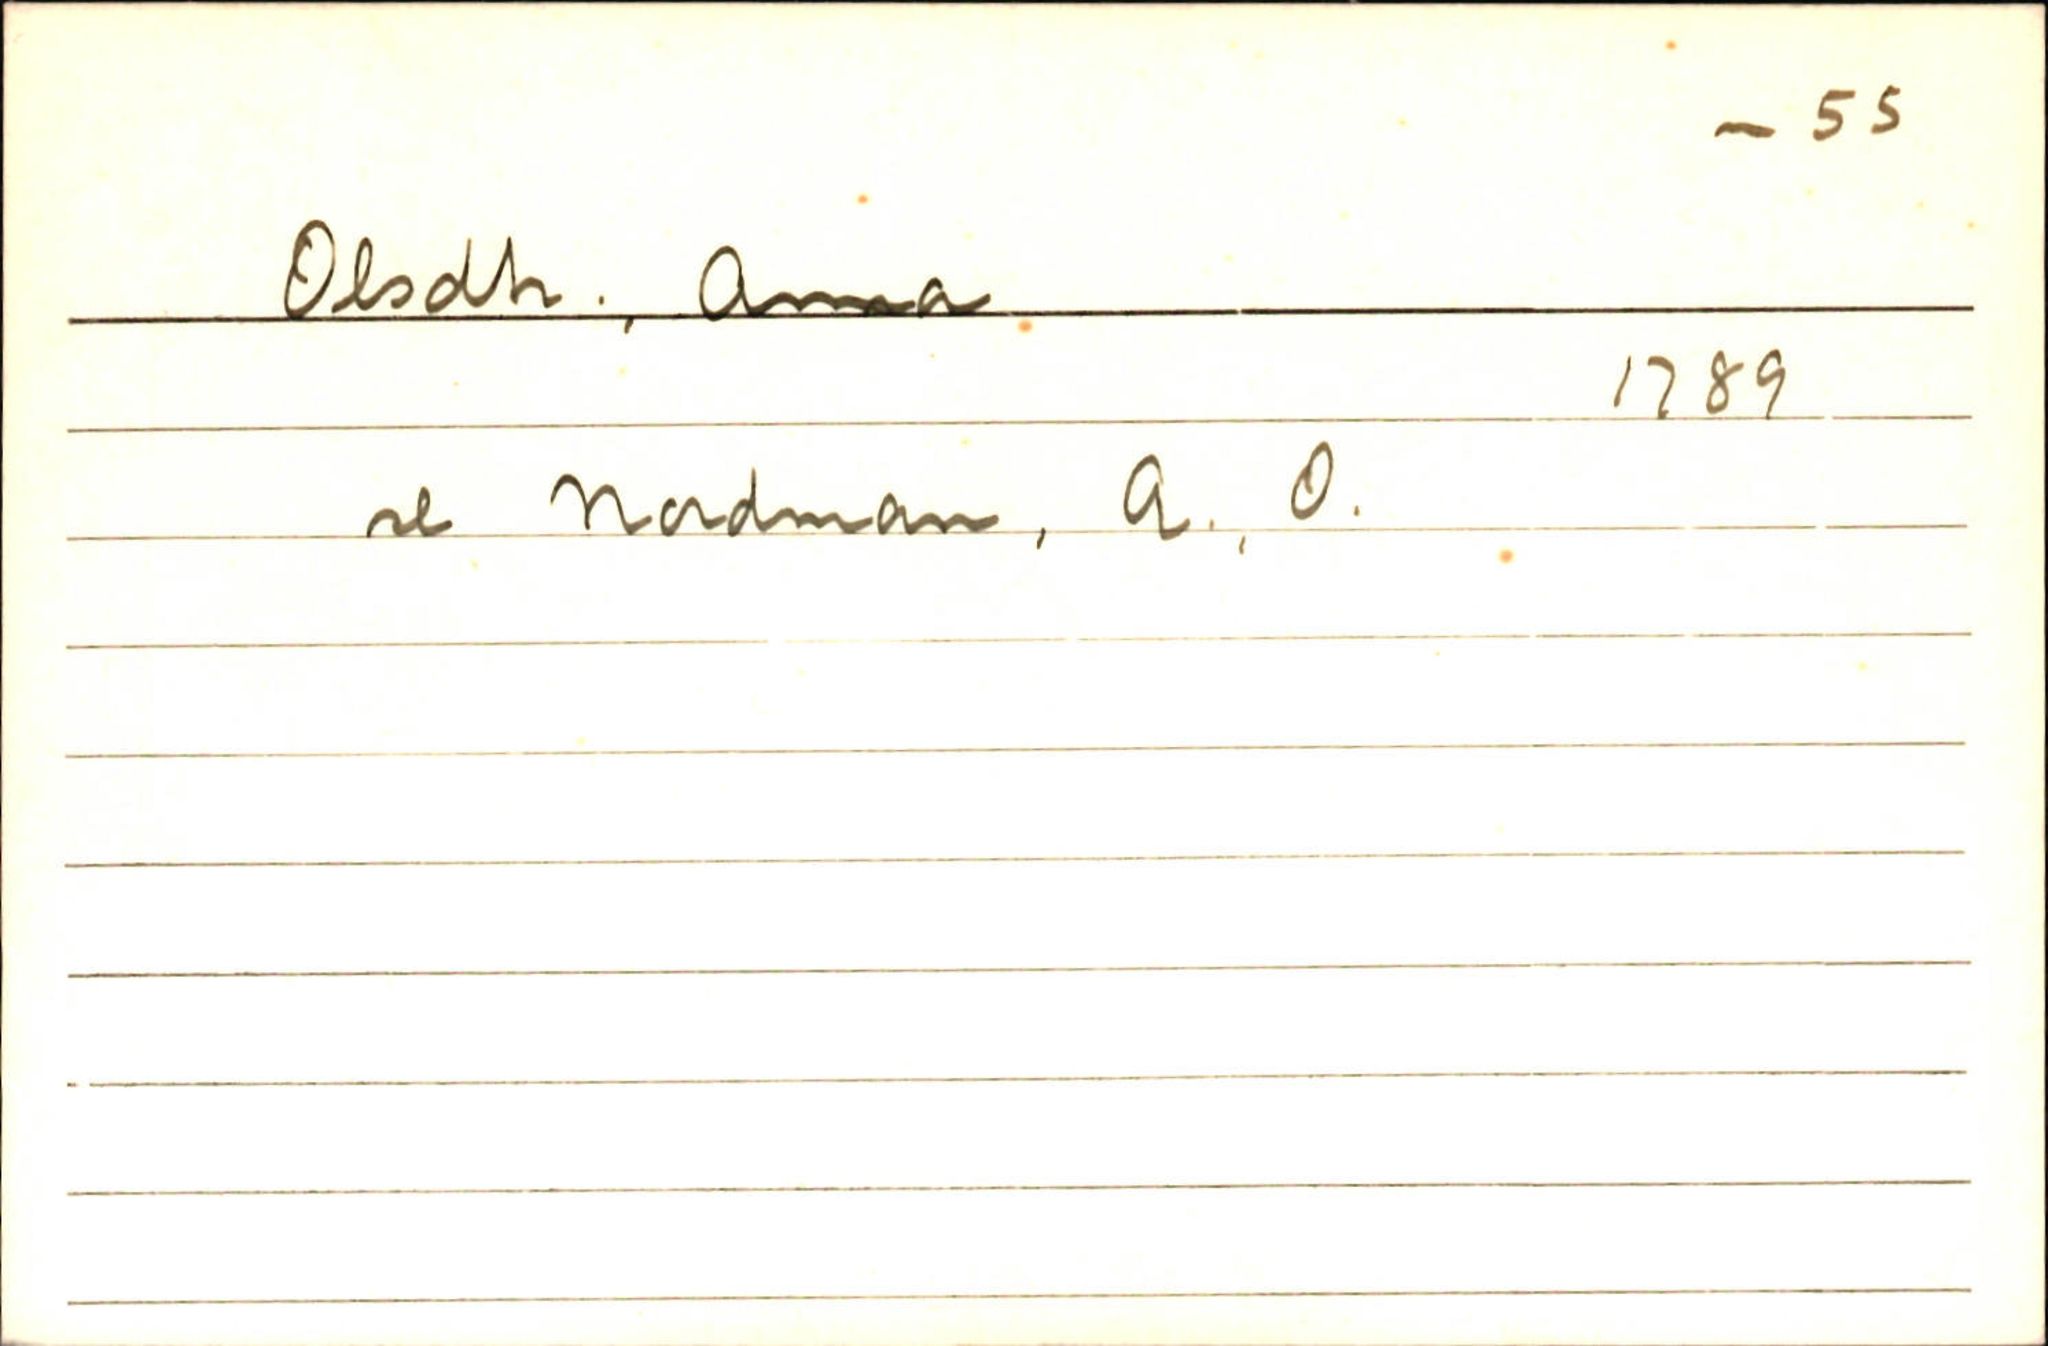 - 55
Olsdtr., Anna
1789
se Nordman, A., O.